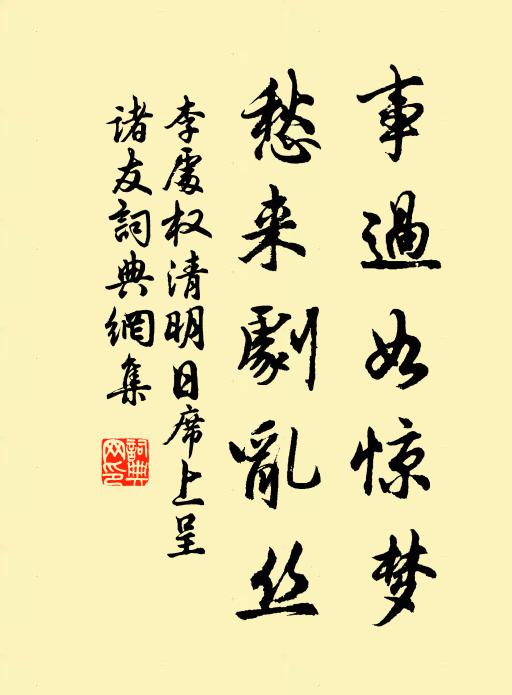 事過如惊梦
愁来劇亂丝
李處权清明日席上呈
诸友詞典網集
詞典网印